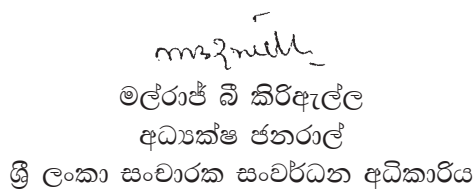 මල්රාජ් බී කිරිඇල්ල
අධ්‍යක්ෂ ජනරාල්
ශ්‍රී ලංකා සංචාරක සංවර්ධන අධිකාරිය